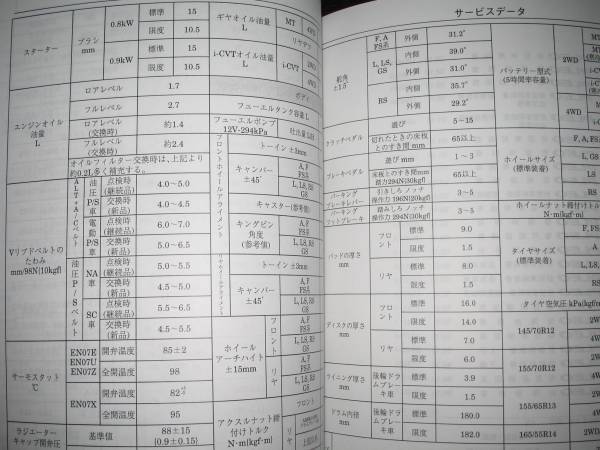 スターター
ブラシ
mm
0.8kW
標準
15
限度
10.5
0.9kW
標準
15
限度
10.5
エンジンオイル
油量
L
ロアレベル
1.7
フルレベル
2.7
ロアレベル
(交換時)
約1.4
フルレベル
(交換時)
約2.4
オイルフィルター交換時は、上記より
約0.2L多く補充する。
Vリブドベルトの
たわみ
mm/98N{10kgf}
ALT+A/Cベルト
油圧P/S車
点検時
(継続品)
4.0～5.0
交換時
(新品)
4.0～4.5
電動P/S車
点検時
(継続品)
6.0～7.0
交換時
(新品)
5.0～6.5
油圧P/Sベルト
NA車
点検時
(継続品)
5.0～5.5
交換時
(新品)
4.5～5.0
SC車
点検時
(継続品)
5.5～6.5
交換時
(新品)
4.5～5.5
サーモスタット
℃
EN07E
EN07U
EN07Z
開弁温度
85±2
全開温度
98
EN07X
開弁温度
82
全開温度
95
ラジエーター
キャップ開弁圧
基準値
88±15
{0.9±0.15}
ギヤオイル油量
L
MT
リヤデフ
i-CVTオイル油量
L
i-CVT
ボディ
フューエルタンク容量 L
フューエルポンプ
12V-294kPa
吐出量
フロントホイールアライメント
トーイン ±3mm
キャンバー
±45′
A, F
FS系
L, LS, RS
GS
キャスター(参考値)
キングピン
角度
(参考値)
A, F
FS系
L, LS, RS
GS
リヤホイールアライメント
トーイン ±3mm
キャンバー
±45′
A, F
FS系
L, LS, RS
GS
ホイール
アーチハイト
±15mm
フロント
A, F
FS系
L, LS, RS
GS
リヤ
A, F
FS系
L, LS, RS
GS
アクスルナット締
付けトルク
N・m{kgf・m}
フロント
リヤ
サービスデータ
舵角
±1.5°
F, A
FS系
外側
31.2°
L, LS,
GS
内側
39.0°
外側
31.0°
RS
内側
35.7°
外側
29.2°
クラッチペダル
遊び
5～15
切れたときの床板
とのすき間 mm
65以上
ブレーキペダル
遊び mm
1～3
床板とのすき間mm
踏力294N{30kgf}
65以上
パーキング
ブレーキレバー
引きしろ ノッチ
操作力 196N{20kgf}
3～5
パーキング
フットブレーキ
踏みしろ ノッチ
操作力 294N{30kgf}
3～5
パッドの厚さ
mm
フロント
標準
9.0
限度
1.5
リヤ
標準
8.0
限度
1.5
ディスクの厚さ
mm
フロント
標準
16.0
限度
14.0
リヤ
標準
7.0
限度
6.0
ライニング厚さ
mm
後輪ドラムブレーキ車
標準
3.9
限度
1.5
ドラム内径
mm
後輪ドラムブレーキ車
標準
180.0
限度
182.0
バッテリー型式
(5時間率容量)
2WD
4WD
ホイールサイズ
(標準装着)
F, A, FS
L, GS
LS
RS
ホイールナット締付け
N・m{kgf・m}
タイヤサイズ
(標準装着)
タイヤ空気圧 kPa{kgf/
145/70R12
155/70R12
155/65R13
165/55R14